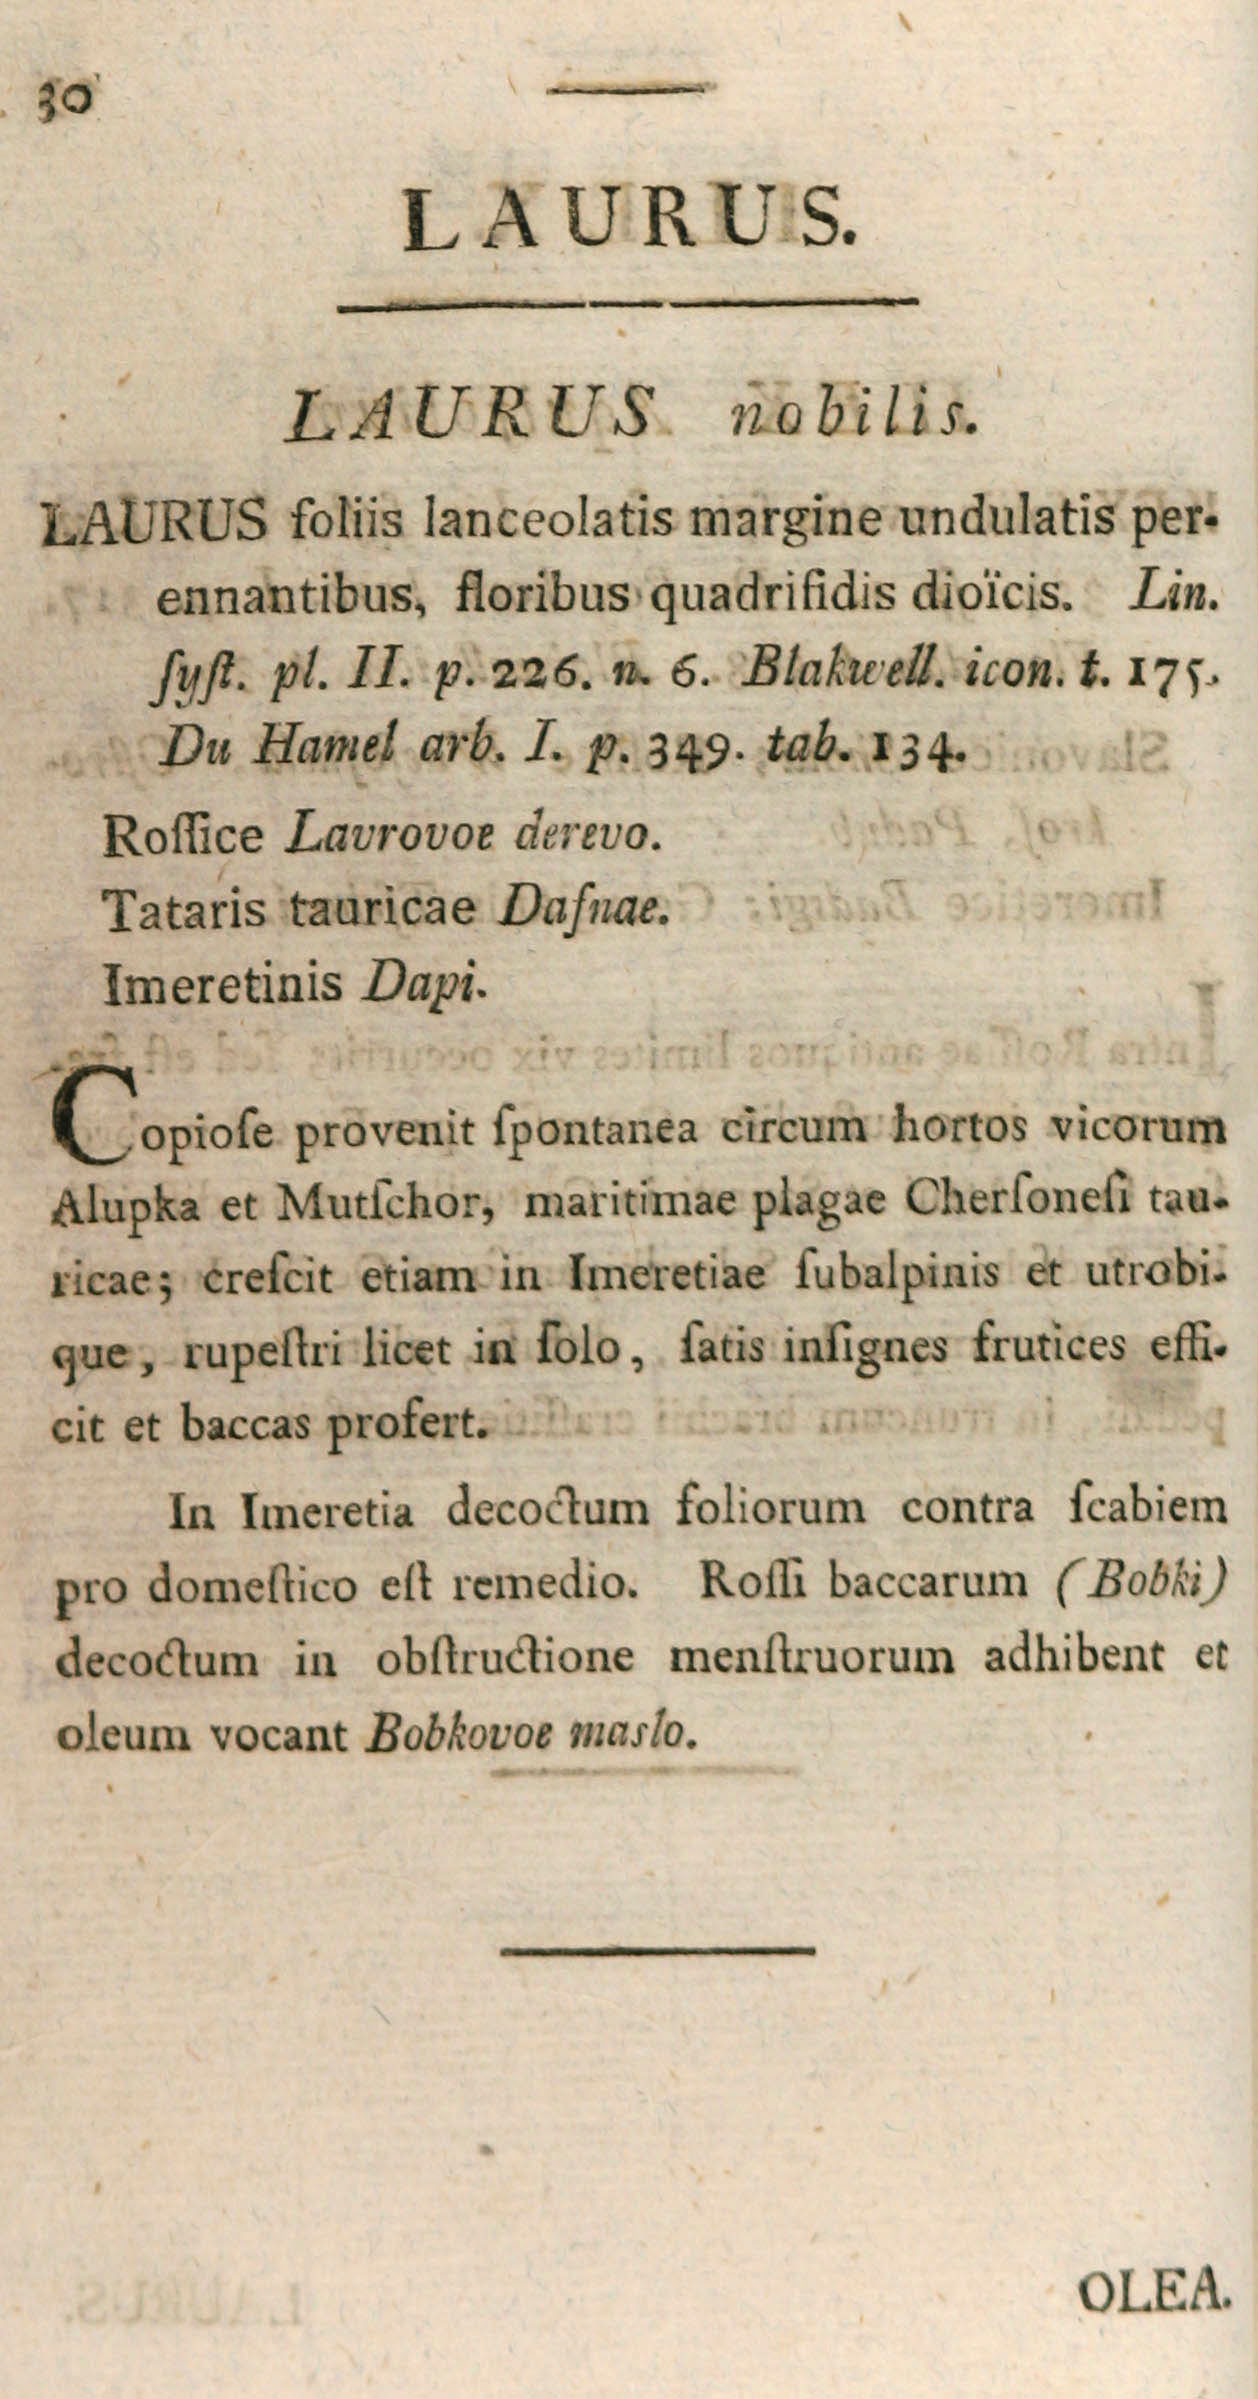 30
LAURUS.
LAURUS nobilis.
LAURUS foliis lanceolatis margine undulatis per-
ennantibus, floribus quadrifidis dioïcis. Lin.
ſyſt. pl. II. p. 226. n. 6. Blakwell. icon. t. 175.
Du Hamel arb. I. p. 349. tab. 134.
Roſſice Lavrovoe derevo.
Tataris tauricae Daſnae.
Imeretinis Dapi.
Copioſe provenit ſpontanea circum hortos vicorum
Alupka et Mutſchor, maritimae plagae Cherſoneſi tau-
ricae; creſcit etiam in Imeretiae ſubalpinis et utrobi-
que, rupeſtri licet in ſolo, ſatis inſignes frutices effi-
cit et baccas profert.
In Imeretia decoctum foliorum contra ſcabiem
pro domeſtico eſt remedio. Roſſi baccarum (Bobki)
decoctum in obſtructione menſtruorum adhibent et
oleum vocant Bobkovoe maslo.
OLEA.